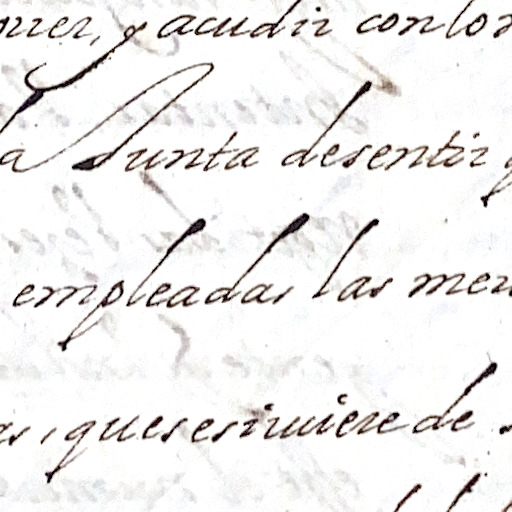 rrer, y acudir con los
la Junta desentir q
empleadas las mer
as, quesesirviere de